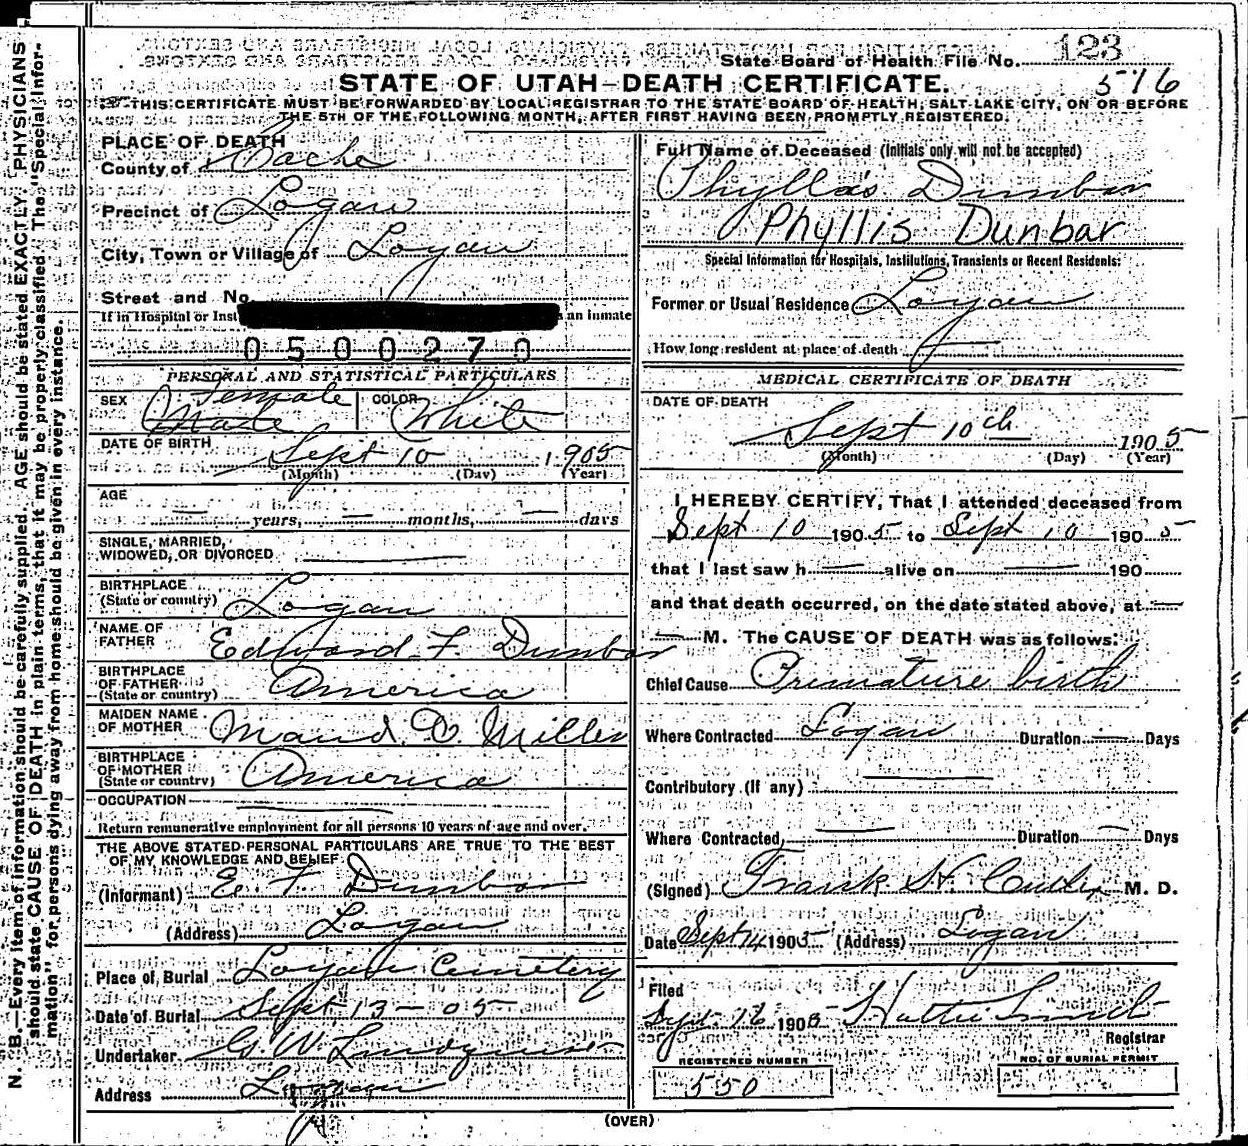 N. B.—Every item of information should be carefully supplied. AGE should be stated EXACTLY. PHYSICIANS
should state CAUSE OF DEATH in plain terms, that it may be properly classified. The "Special Infor-
mation" for persons dying away from home should be given in every instance.
123
State Board of Health File No.
STATE OF UTAH—DEATH CERTIFICATE.
576
THIS CERTIFICATE MUST BE FORWARDED BY LOCAL REGISTRAR TO THE STATE BOARD OF HEALTH, SALT LAKE CITY, ON OR BEFORE
THE 5TH OF THE FOLLOWING MONTH, AFTER FIRST HAVING BEEN PROMPTLY REGISTERED.
PLACE OF DEATH
County of Cache
Precinct of Logan
City, Town or Village of Logan
Street and No.
If in Hospital or Inst an inmate
0500270
PERSONAL AND STATISTICAL PARTICULARS
SEX Female Male COLOR White
DATE OF BIRTH
Sept 10 1905
(Month) (Day) (Year)
AGE
— years, — months, — days
SINGLE, MARRIED,
WIDOWED, OR DIVORCED
BIRTHPLACE
(State or country) Logan
NAME OF
FATHER Edward F. Dunbar
BIRTHPLACE
OF FATHER
(State or country) America
MAIDEN NAME
OF MOTHER Maud D. Miller
BIRTHPLACE
OF MOTHER
(State or country) America
OCCUPATION
Return remunerative employment for all persons 10 years of age and over.
THE ABOVE STATED PERSONAL PARTICULARS ARE TRUE TO THE BEST
OF MY KNOWLEDGE AND BELIEF.
(Informant) E. F. Dunbar
(Address) Logan
Place of Burial Logan Cemetery
Date of Burial Sept 13 - 05
Undertaker G. W. Lindquist
Address Logan
Full Name of Deceased (Initials only will not be accepted)
Phyllas Dunbar
Phyllis Dunbar
Special Information for Hospitals, Institutions, Transients or Recent Residents:
Former or Usual Residence Logan
How long resident at place of death
MEDICAL CERTIFICATE OF DEATH
DATE OF DEATH
Sept 10th 1905
(Month) (Day) (Year)
I HEREBY CERTIFY, That I attended deceased from
Sept 10 1905 to Sept 10 1905
that I last saw h — alive on — 190
and that death occurred, on the date stated above, at —
— M. The CAUSE OF DEATH was as follows:
Chief Cause Premature birth
Where Contracted Logan Duration — Days
Contributory (If any)
Where Contracted, — Duration — Days
(Signed) Frank H. M. D.
Date Sept 14 1905 (Address) Logan
Filed
Sept. 16 1905 Hattie Smith
Registrar
REGISTERED NUMBER
550
NO. OF BURIAL PERMIT
(OVER)